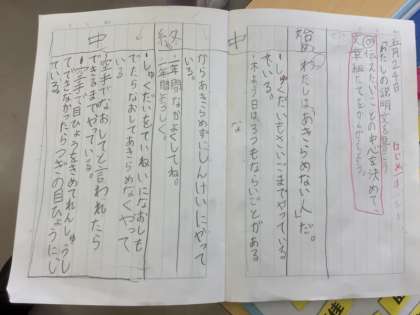 五月二十日
「わたしの説明文を書こう」
はじめ・中
伝えたいことの中心を決めて
文章組み立てをかんがえよう。
始め
わたしは「あきらめない人」だ。
中
・しゅくだいもさいごまでやっている
ている。
・木よう日は3つもならいごとがある。
な
からあきらめずにしんけいにやって
いる。
終
二年間、なかよくしてね。
一年間よろしく。
中
・しゅくだいをていねいになおしも
でたらなおしてあきらめなくやって
いる
・空手でなおしてと言われたら
できるまでやっている。
・空手で目ひょうをきめてれんしゅうし
てできなかったらつぎの目ひょうにし
ている。